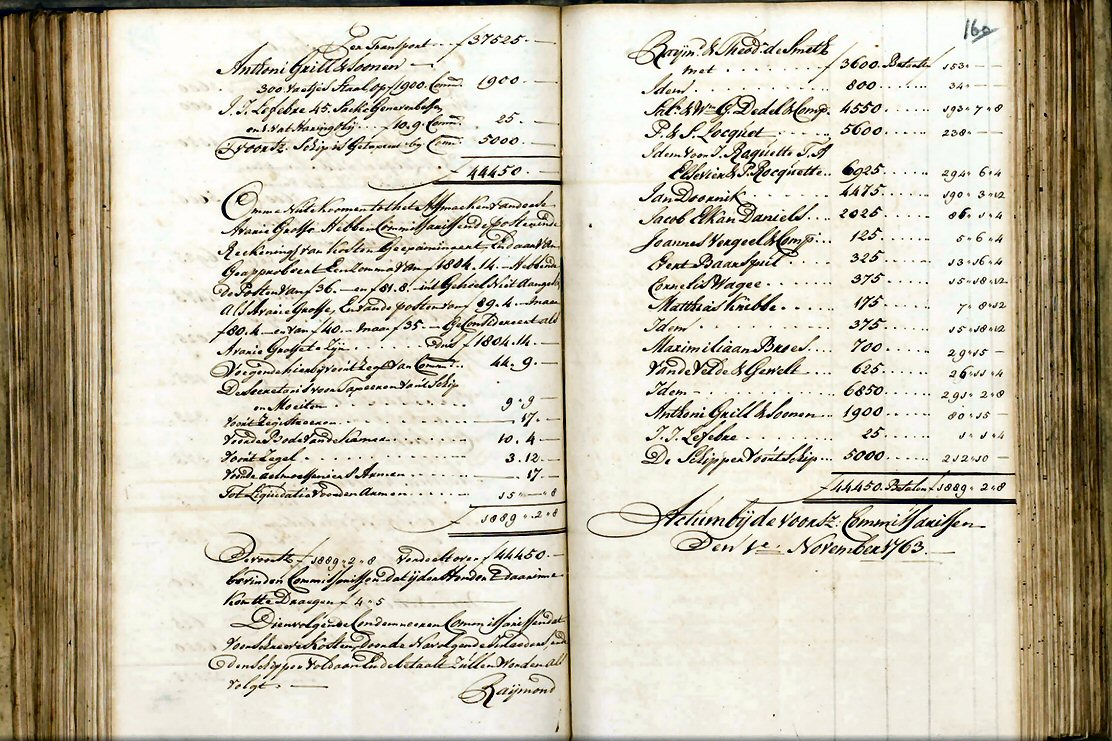 Per Transport . . f 37525. —
Anthoni Grill & Soonen —
300 vaetjes Staal op f 1900. Comm. 1900. —
J. J. Lefebre 45. Sacke Geneverbessen
en 1. vat Haring bij . . . f 10. 9. Comm. 25. —
't voorsz. Schip is Getaxeert bij Comm. 5000. —
f 44450. —
Omme Nu te koomen tot het afmaeken van deese
Avarie Grosse Hebben Commissarissen de posten in de
Reekening van kosten Geexamineert, End' daar van
Geapprobeert Een Somma van f 1804. 14. — Hebbende
De Posten van f 36. — en f 51. 8. — in 't Geheel Niet Aangeslagen
Als Avarie Grosse, En van de posten van f 89. 4. — maar
f 80. 4. — en van f 40. — maar f 35. — Geconsidereert als
Avarie Grosse te Zijn . . . . Dus f 1804. 14. —
Voegende hier bij voor 't Leges van Comm. . . 44. 9. —
De Secretaris voor Taxeeren van 't Schip
en Moeiten . . . . . . . . 9 „ 9 —
Voor 't Registreeren . . . . . . . „ 17. —
Voor den Bode van de Kamer . . . . . . . 10. 4. —
Voor 't Zegel . . . . . . . . 3. 12. —
Voor de aelmoesseniers Armen . . . . . „ 17. —
Tot Liquidatie voor den Armen . . . . . 15 „ — „ 8
f 1889 „ 2 „ 8
De voorsz. f 1889 „ 2 „ 8 Verdeelt over f 44450. —
bevinden Commissarissen dat ijder Honder Daar inne
komt te Draegen f 4 „ 5 —
Dien volgende Condemneeren Commissarissen dat
voorschreeve kosten, door de Navolgende Inlaeders, ende
den Schipper voldaan Ende betaalt Zullen worden als
volgt. —
Raijmond
160
Raijm. & Theod. de Smeth
met . . . . . . . . f 3600. Betaalen f 153 „ — „ —
Idem . . . . . . . . 800. . . . . . 34 „ — —
Sal. & Wm. G. Dedel & Comp. 4550. . . . . . 193 „ 7 „ 8
P. & S. Locquet . . . . . . 5600. . . . . . 238 „ — —
Idem voor J. Raquette T. A
Elsevier & P. Rocquette . . 6925. . . . . . 294 „ 6 „ 4
Jan Doornik . . . . . . . 4475. . . . . . 190 „ 3 „ 12
Jacob Elkan Daniels . . . 2025. . . . . . 86 „ 1 „ 4
Joannes Vergeel & Comp. . . 125. . . . . . 5 „ 6 „ 4
Evert Baarspuil . . . . . 325. . . . . . 13 „ 16 „ 4
Cornelis Wagee . . . . . . 375. . . . . . 15 „ 18 „ 12
Matthias Knibbe . . . . . 175. . . . . . 7 „ 8 „ 12
Idem . . . . . . . . 375. . . . . . 15 „ 18 „ 12
Maximiliaan Broers . . . . 700. . . . . . 29 „ 15 —
Van de Velde & Gewelt . . . 625. . . . . . 26 „ 11 „ 4
Idem . . . . . . . . 6850. . . . . . 291 „ 2 „ 8
Anthoni Grill & Soonen . . . 1900. . . . . . 80 „ 15 —
J. J. Lefebre . . . . . . . 25. . . . . . 1 „ 1 „ 4
De Schipper voor 't Schip . . . 5000. . . . . . 212 „ 10 —
f 44450. Betalen f 1889 „ 2 „ 8
Actum bij de voorsz. Commissarissen
Den 1e. November 1763. —